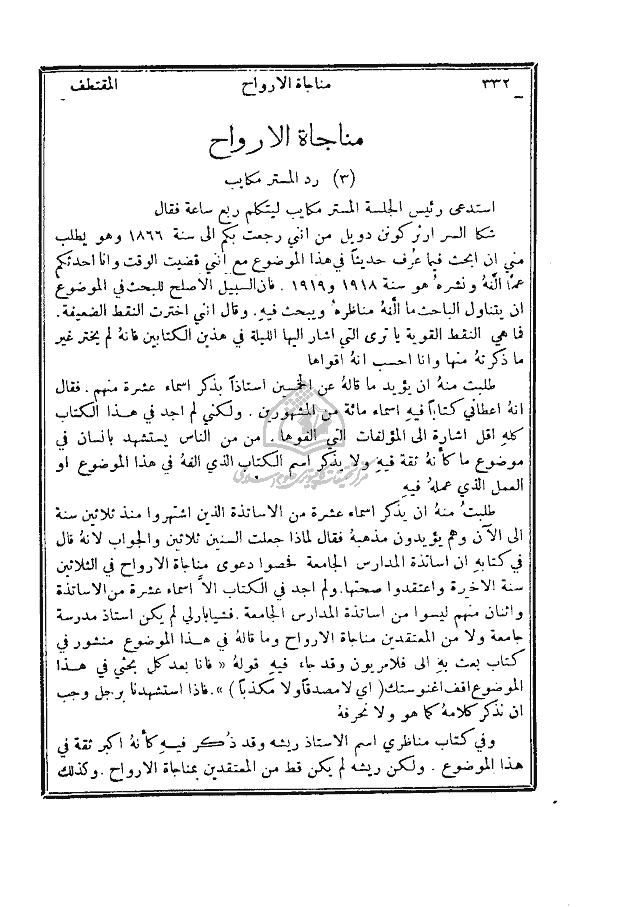 ٣٣٢ مناجاة الارواح المقتطف
مناجاة الارواح
(٣) رد المستر مكايب
استدعى رئيس الجلسة المستر مكايب ليتكلم ربع ساعة فقال
شكا السر ارثر كونن دويل من انني رجعت بكم الى سنة ١٨٦٦ وهو يطلب
مني ان ابحث فيما عرف حديثاً في هذا الموضوع مع انني قضيت الوقت وانا احدثكم
عما الّفهُ ونشرهُ هو سنة ١٩١٨ و١٩١٩ . فان السبيل الاصلح للبحث في الموضوع
ان يتناول الباحث ما الّفهُ مناظرهُ ويبحث فيهِ . وقال انني اخترت النقط الضعيفة .
فما هي النقط القوية يا ترى التي اشار اليها الليلة في هذين الكتابين فانهُ لم يختر غير
ما ذكرتهُ منها وانا احسب انهُ اقواها
طلبت منهُ ان يؤيد ما قالهُ عن الخمسين استاذاً بذكر اسماء عشرة منهم . فقال
انهُ اعطاني كتاباً فيهِ اسماء مائة من المشهورين . ولكني لم اجد في هذا الكتاب
كلهِ اقل اشارة الى المؤلفات التي الفوها . من من الناس يستشهد بانسان في
موضوع ما كأنهُ ثقة فيهِ ولا يذكر اسم الكتاب الذي الفهُ في هذا الموضوع او
العمل الذي عملهُ فيهِ
طلبتُ منهُ ان يذكر اسماء عشرة من الاساتذة الذين اشتهروا منذ ثلاثين سنة
الى الآن وهم يؤيدون مذهبهُ فقال لماذا جعلت السنين ثلاثين والجواب لانهُ قال
في كتابهِ ان اساتذة المدارس الجامعة فحصوا دعوى مناجاة الارواح في الثلاثين
سنة الاخيرة واعتقدوا صحتها . ولم اجد في الكتاب الاّ اسماء عشرة من الاساتذة
واثنان منهم ليسوا من اساتذة المدارس الجامعة . فشيابارلي لم يكن استاذ مدرسة
جامعة ولا من المعتقدين مناجاة الارواح وما قالهُ في هذا الموضوع منشور في
كتاب بعث بهِ الى فلامريون وقد جاء فيهِ قولهُ « فانا بعد كل بحثي في هذا
الموضوع اقف اغنوستك ( اي لا مصدقاً ولا مكذباً ) » . فاذا استشهدنا برجل وجب
ان نذكر كلامهُ كما هو ولا نحرفهُ
وفي كتاب مناظري اسم الاستاذ ريشه وقد ذُكر فيهِ كأنهُ اكبر ثقة في
هذا الموضوع . ولكن ريشه لم يكن قط من المعتقدين بمناجاة الارواح . وكذلك